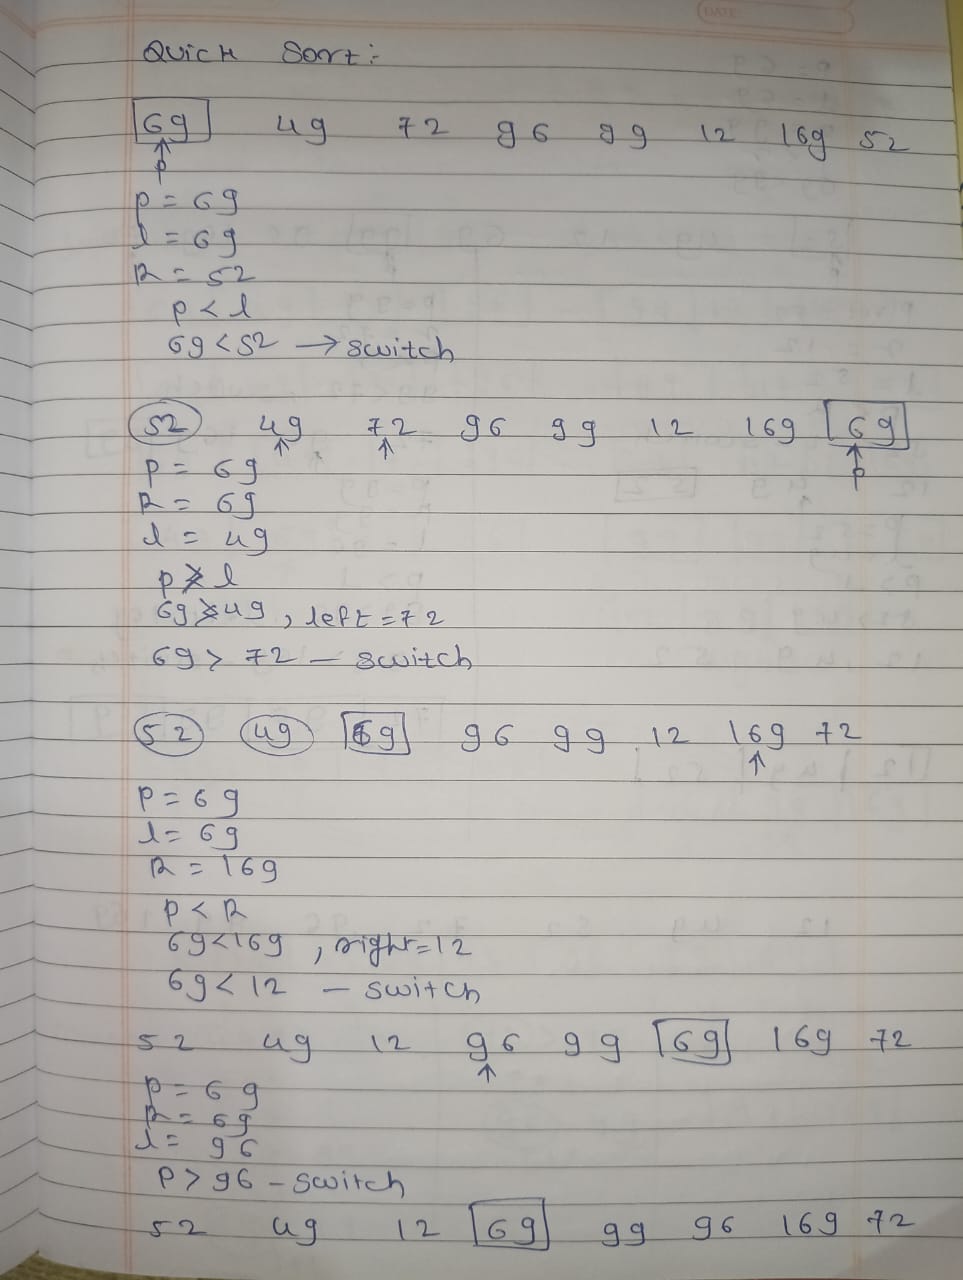 DATE
Quick Sort:
69 49 72 96 99 12 169 52
P
P = 69
l = 69
R = 52
P < l
69 < 52 → switch
52 49 72 96 99 12 169 69
P
P = 69
R = 69
l = 49
P > l
69 > 49, left = 72
69 > 72 - switch
52 49 69 96 99 12 169 72
P = 69
l = 69
R = 169
P < R
69 < 169, right = 12
69 < 12 - switch
52 49 12 96 99 69 169 72
P = 69
R = 69
l = 96
P > 96 - switch
52 49 12 69 99 96 169 72